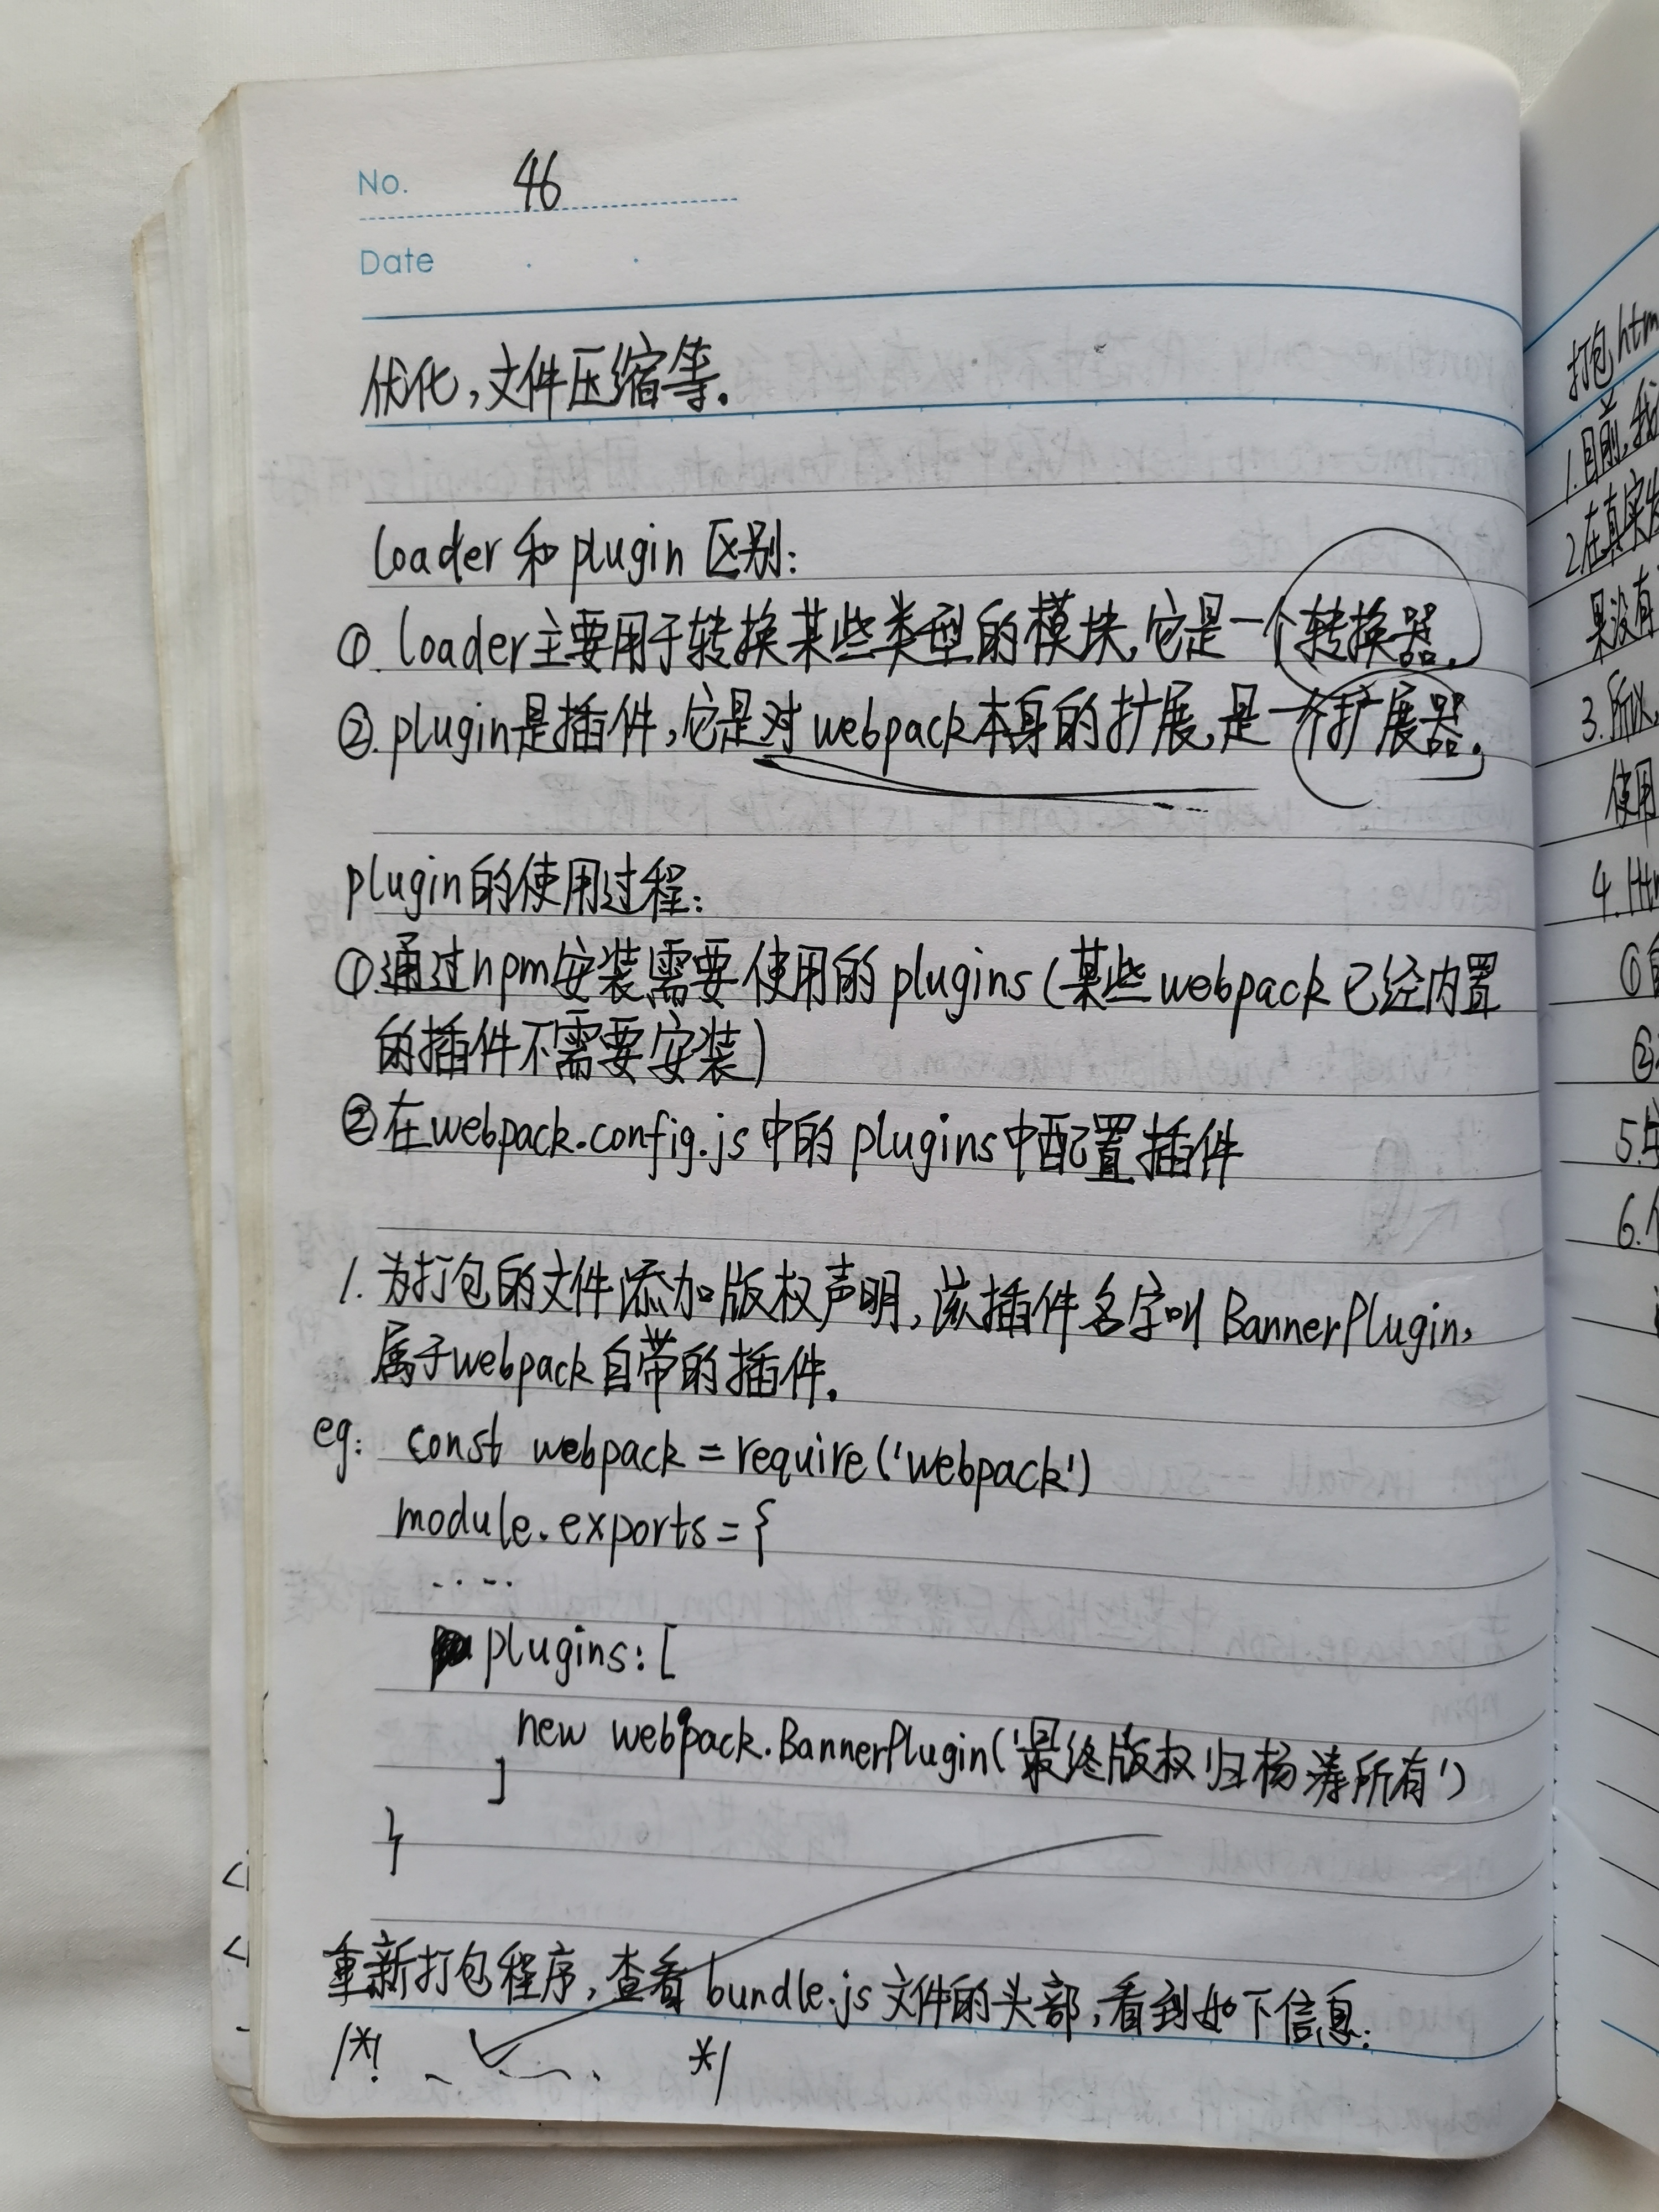 No. 46
Date
优化,文件压缩等.
loader和plugin区别:
①.loader主要用于转换某些类型的模块,它是一个转换器.
②.plugin是插件,它是对webpack本身的扩展,是一个扩展器.
plugin的使用过程:
①通过npm安装需要使用的plugins(某些webpack已经内置
的插件不需要安装)
②在webpack.config.js中的plugins中配置插件
1.为打包的文件添加版权声明,该插件名字叫BannerPlugin,
属于webpack自带的插件.
eg: const webpack=require('webpack')
module.exports={
....
plugins:[
new webpack.BannerPlugin('最终版权归杨涛所有')
]
}
重新打包程序,查看bundle.js文件的头部,看到如下信息:
/*! */
打包htm
1.目前,我
2.在真实发
果没有
3.所以,
使用
4.Htm
①
②
5.
6.